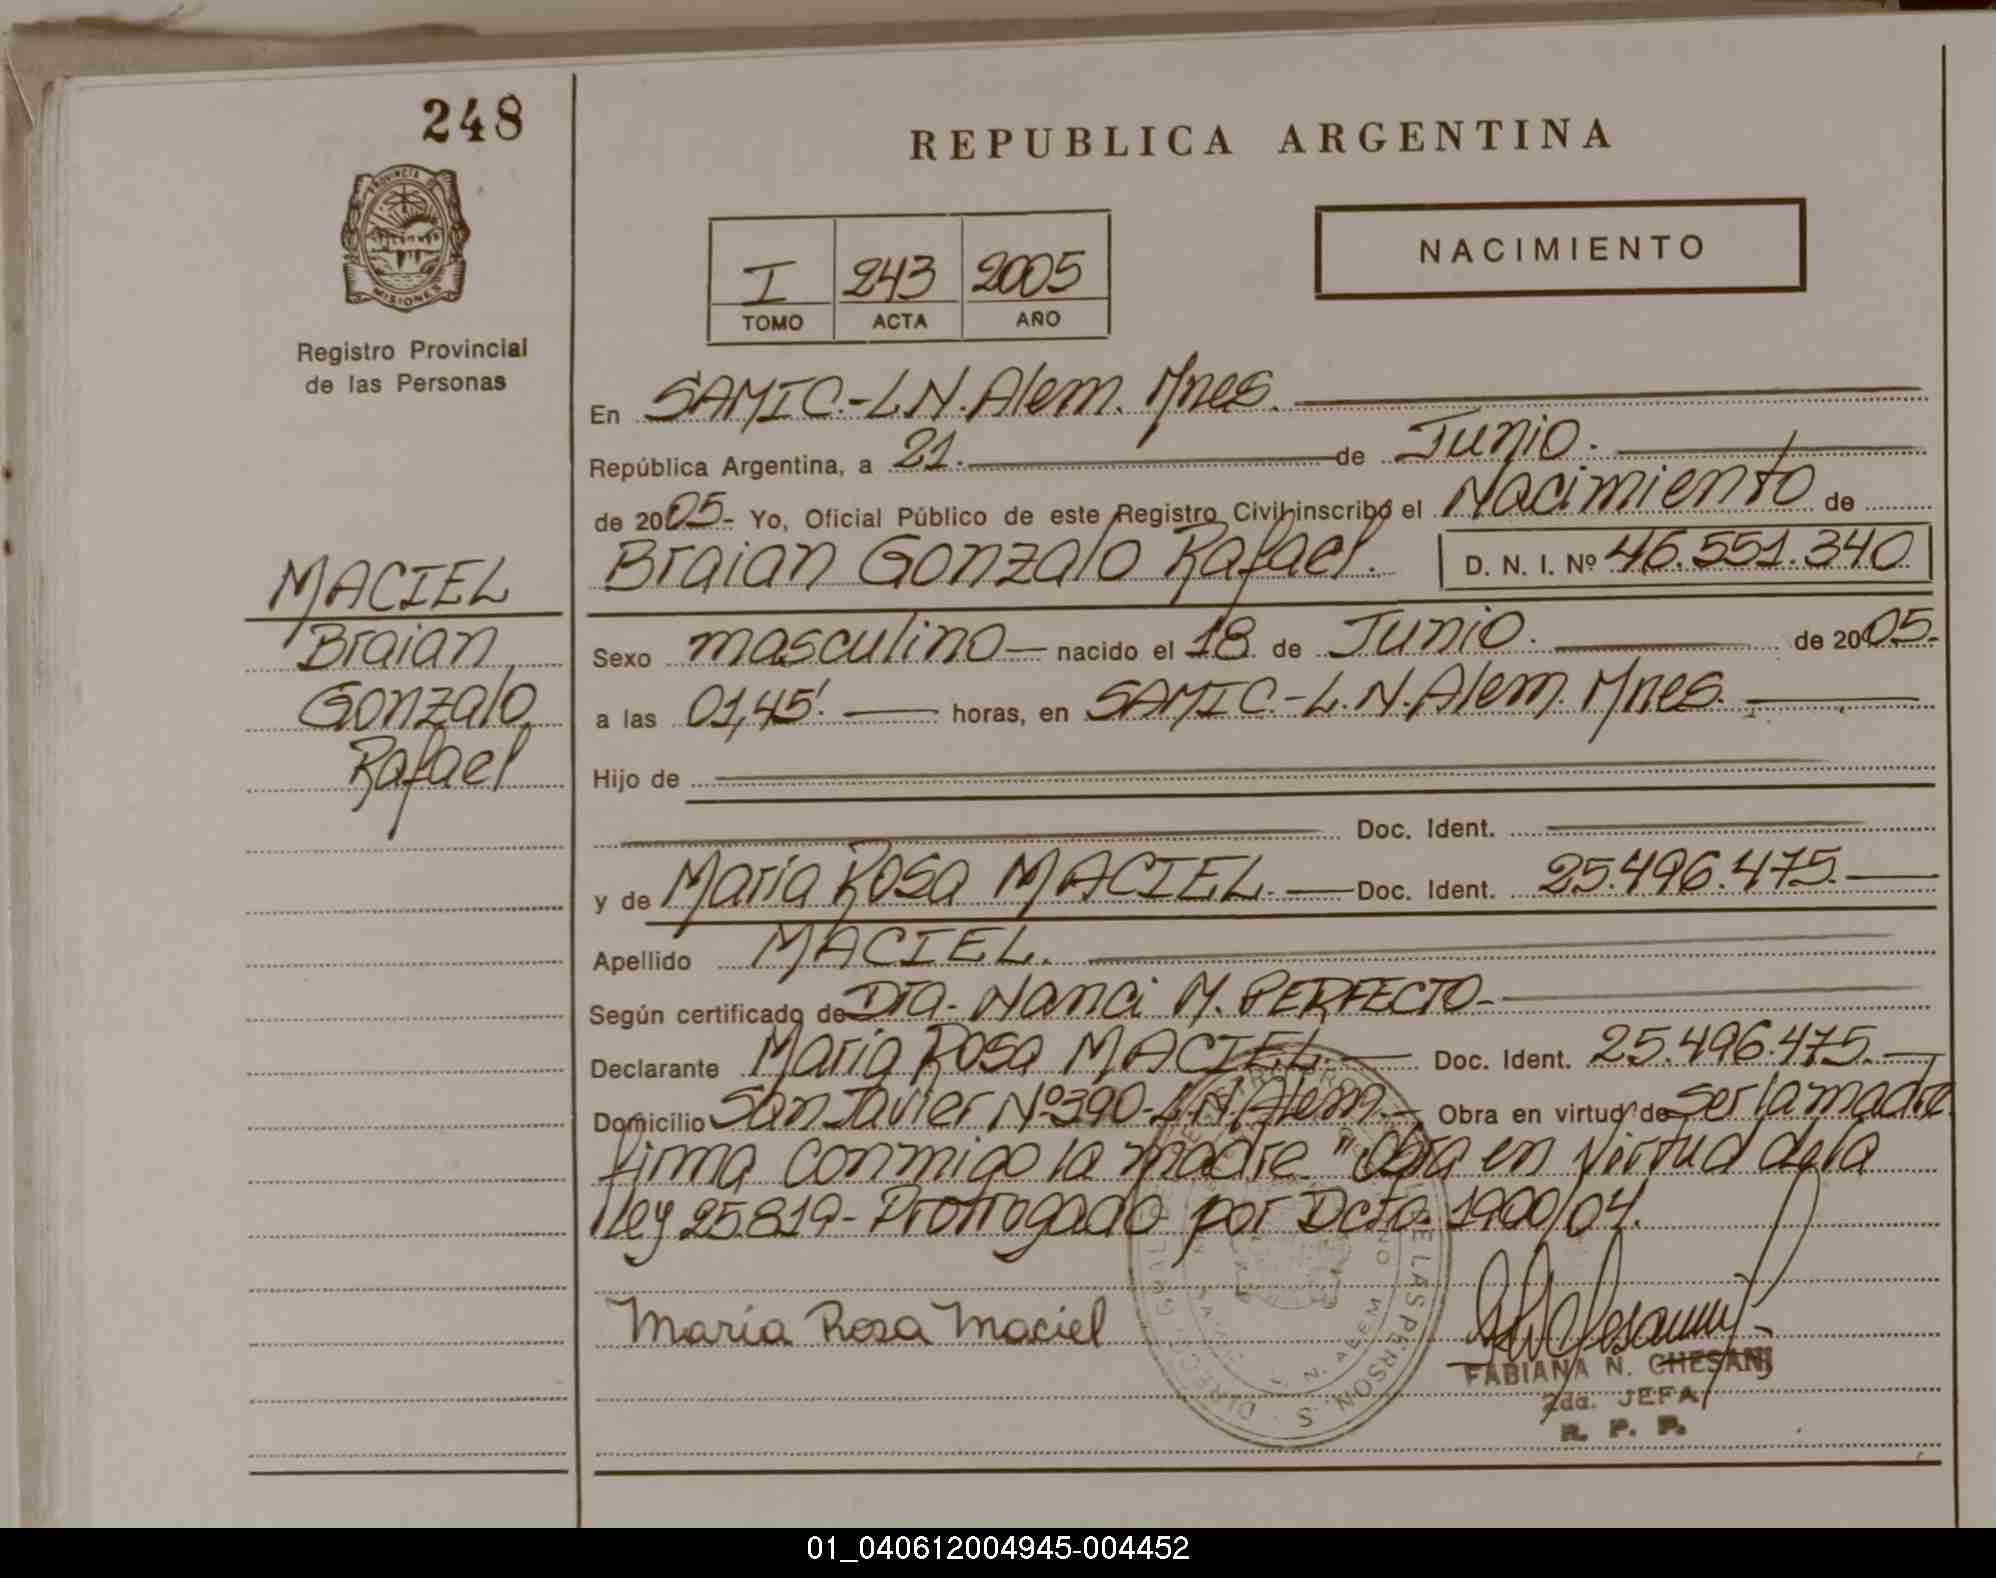 248
REPUBLICA ARGENTINA
PROVINCIA DE
MISIONES
NACIMIENTO
I 243 2005
TOMO ACTA AÑO
Registro Provincial
de las Personas
En SAMIC.-L.N.Alem. Mnes.
República Argentina, a 21. de Junio.
de 2005- Yo, Oficial Público de este Registro Civil inscribo el Nacimiento de
Braian Gonzalo Rafael. D. N. I. Nº 46.551.340
MACIEL
Braian
Gonzalo
Rafael
Sexo masculino nacido el 18 de Junio. de 2005.
a las 01,45'. horas, en SAMIC.-L.N.Alem. Mnes.
Hijo de
Doc. Ident.
y de María Rosa MACIEL. Doc. Ident. 25.496.475.
Apellido MACIEL.
Según certificado de Dra. Nanci M. PERFECTO-
Declarante María Rosa MACIEL. Doc. Ident. 25.496.475.
Domicilio San Javier Nº390-L.N.Alem.- Obra en virtud de ser la madre
firma conmigo la madre "Obra en virtud de la
Ley 25.819- Prorrogado por Dcto. 1900/04.
María Rosa Maciel
FABIANA N. CHESANI
2da. JEFA
R. P. P.
01_040612004945-004452